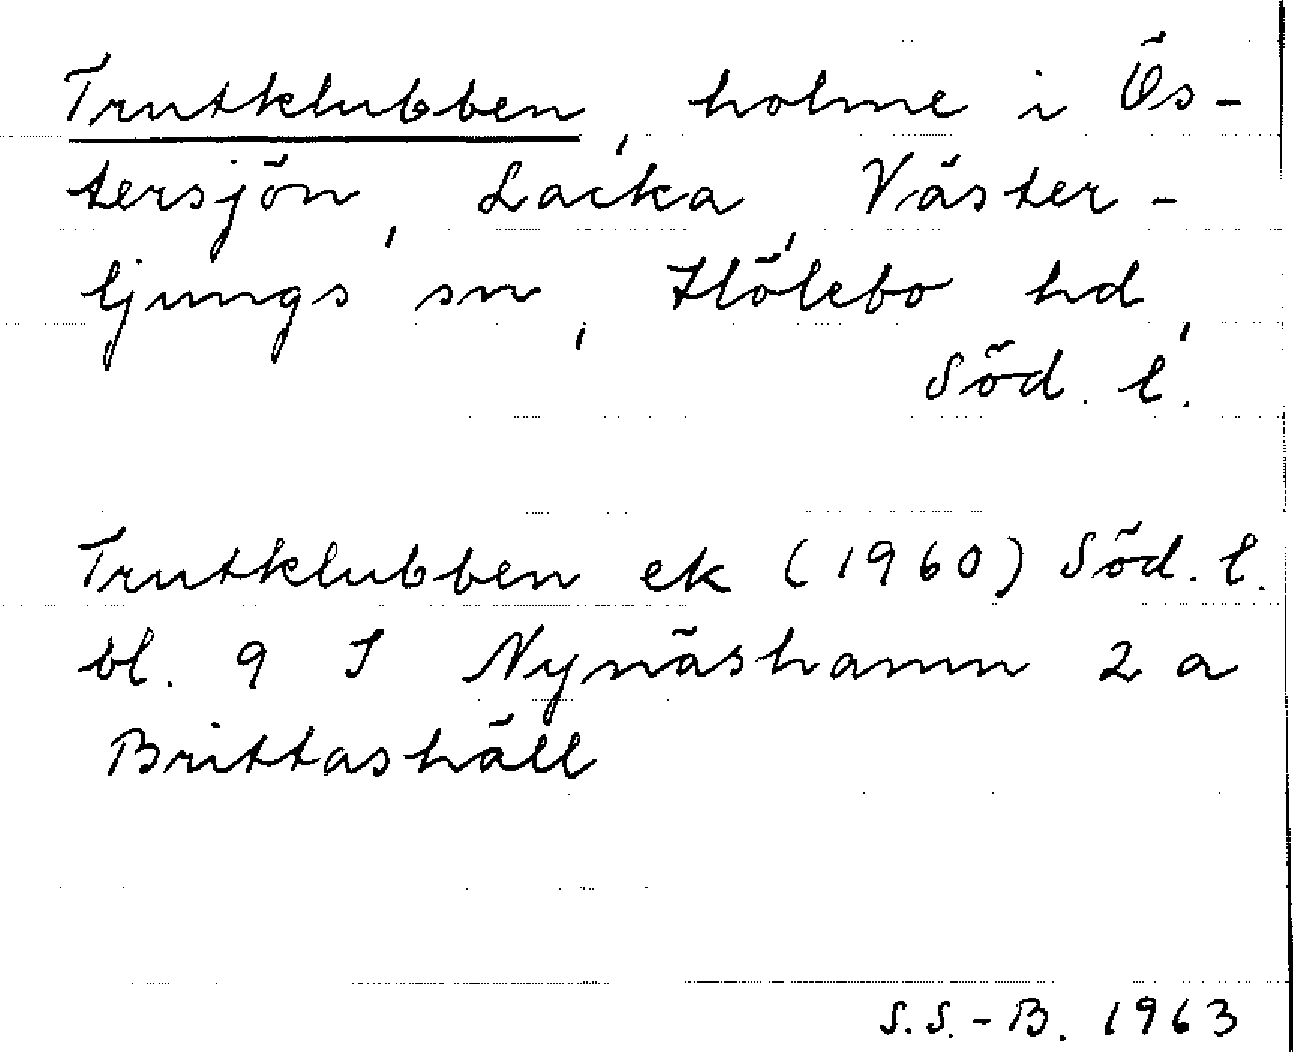 Trutklubben, holme i Ös-
tersjön, Lacka, Väster-
ljungs sn, Hölebo hd,
Söd. l.
Trutklubben ek (1960) Söd. l.
bl. 9 I Nynäshamn 2 a
Brittashäll
S.S.-B. 1963